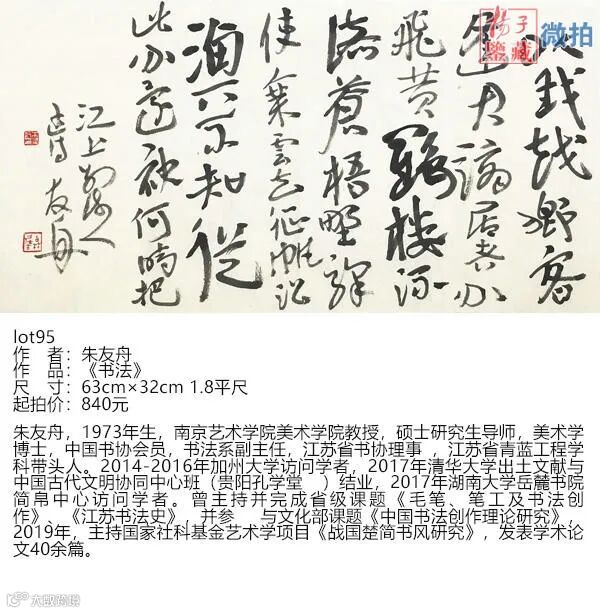 以我越鄉客
逢君謫居者分
飛黄鶴樓流
落蒼梧野驛
使乘雲去征帆沿
溜下不知從
此分還袂何時把
江上别流人
友舟
揚子鑒藏 微拍
lot95
作　者：朱友舟
作　品：《书法》
尺　寸：63cm×32cm 1.8平尺
起拍价：840元
朱友舟，1973年生，南京艺术学院美术学院教授，硕士研究生导师，美术学
博士，中国书协会员，书法系副主任，江苏省书协理事 ，江苏省青蓝工程学
科带头人。2014-2016年加州大学访问学者，2017年清华大学出土文献与
中国古代文明协同中心班（贵阳孔学堂　）结业，2017年湖南大学岳麓书院
简帛中心访问学者。曾主持并完成省级课题《毛笔、笔工及书法创
作》、《江苏书法史》，并参　与文化部课题《中国书法创作理论研究》，
2019年，主持国家社科基金艺术学项目《战国楚简书风研究》，发表学术论
文40余篇。
大数跨境